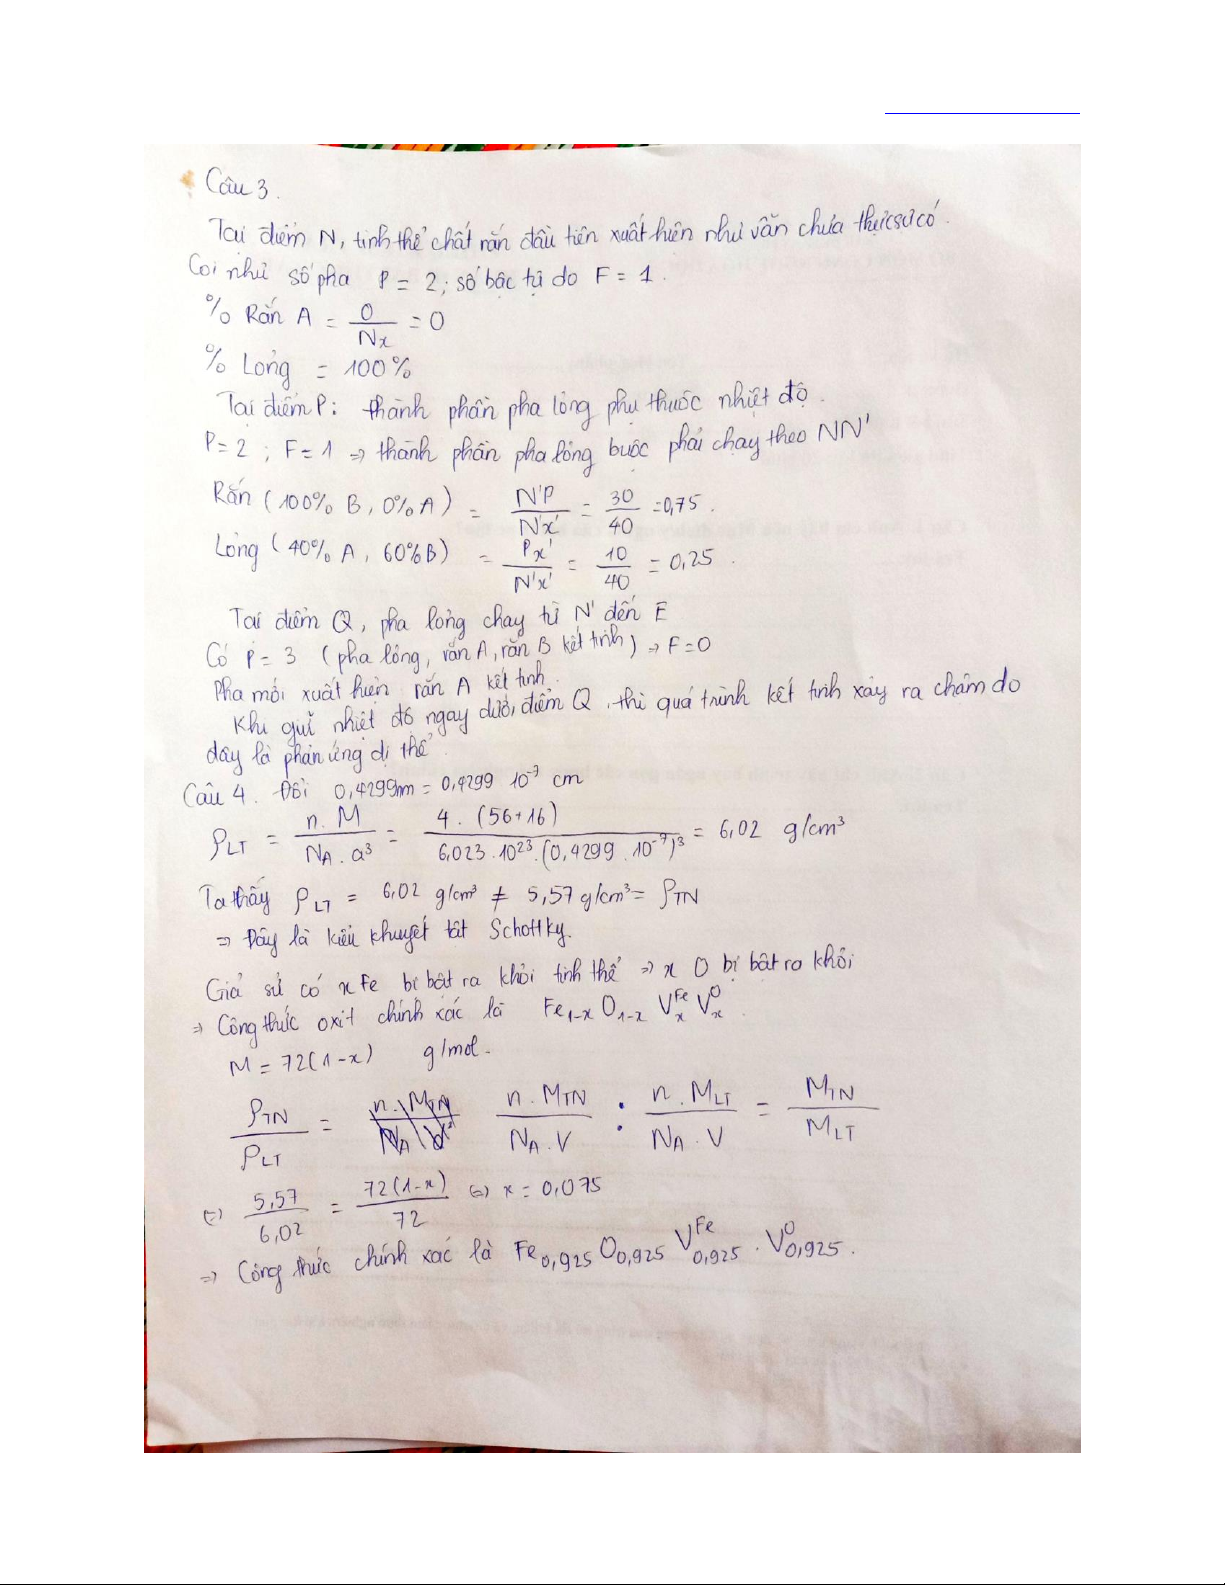 Câu 3.
Tại điểm N, tinh thể chất rắn đầu tiên xuất hiện như vẫn chưa thực sự có.
Coi như số pha P = 2; số bậc tự do F = 1.
% Rắn A = 0/Nx = 0
% Lỏng = 100%
Tại điểm P: thành phần pha lỏng phụ thuộc nhiệt độ.
P = 2; F = 1 => thành phần pha lỏng buộc phải chạy theo NN'
Rắn (100% B, 0% A) = N'P/N'x' = 30/40 = 0,75.
Lỏng (40% A, 60% B) = Px'/N'x' = 10/40 = 0,25.
Tại điểm Q, pha lỏng chạy từ N' đến E
Có P = 3 (pha lỏng, rắn A, rắn B kết tinh) => F = 0
Pha mới xuất hiện rắn A kết tinh.
Khi giữ nhiệt độ ngay dưới điểm Q, thì quá trình kết tinh xảy ra chậm do
đây là phản ứng dị thể.
Câu 4. Đổi 0,4299nm = 0,4299 10⁻⁷ cm
ρLT = n.M/(NA.a³) = 4.(56+16)/(6,023.10²³.(0,4299.10⁻⁷)³) = 6,02 g/cm³
Ta thấy ρLT = 6,02 g/cm³ ≠ 5,57 g/cm³ = ρTN
=> Đây là kiểu khuyết tật Schottky.
Giả sử có x Fe bị bật ra khỏi tinh thể => x O bị bật ra khỏi
=> Công thức oxit chính xác là Fe₁₋ₓ O₁₋ₓ Vₓ^Fe Vₓ^O.
M = 72(1-x) g/mol.
ρTN/ρLT = n.MTN/(NA.V) : n.MLT/(NA.V) = MTN/MLT
(=) 5,57/6,02 = 72(1-x)/72 (=) x = 0,075
=> Công thức chính xác là Fe₀,₉₂₅ O₀,₉₂₅ V^Fe₀,₉₂₅ . V^O₀,₉₂₅.